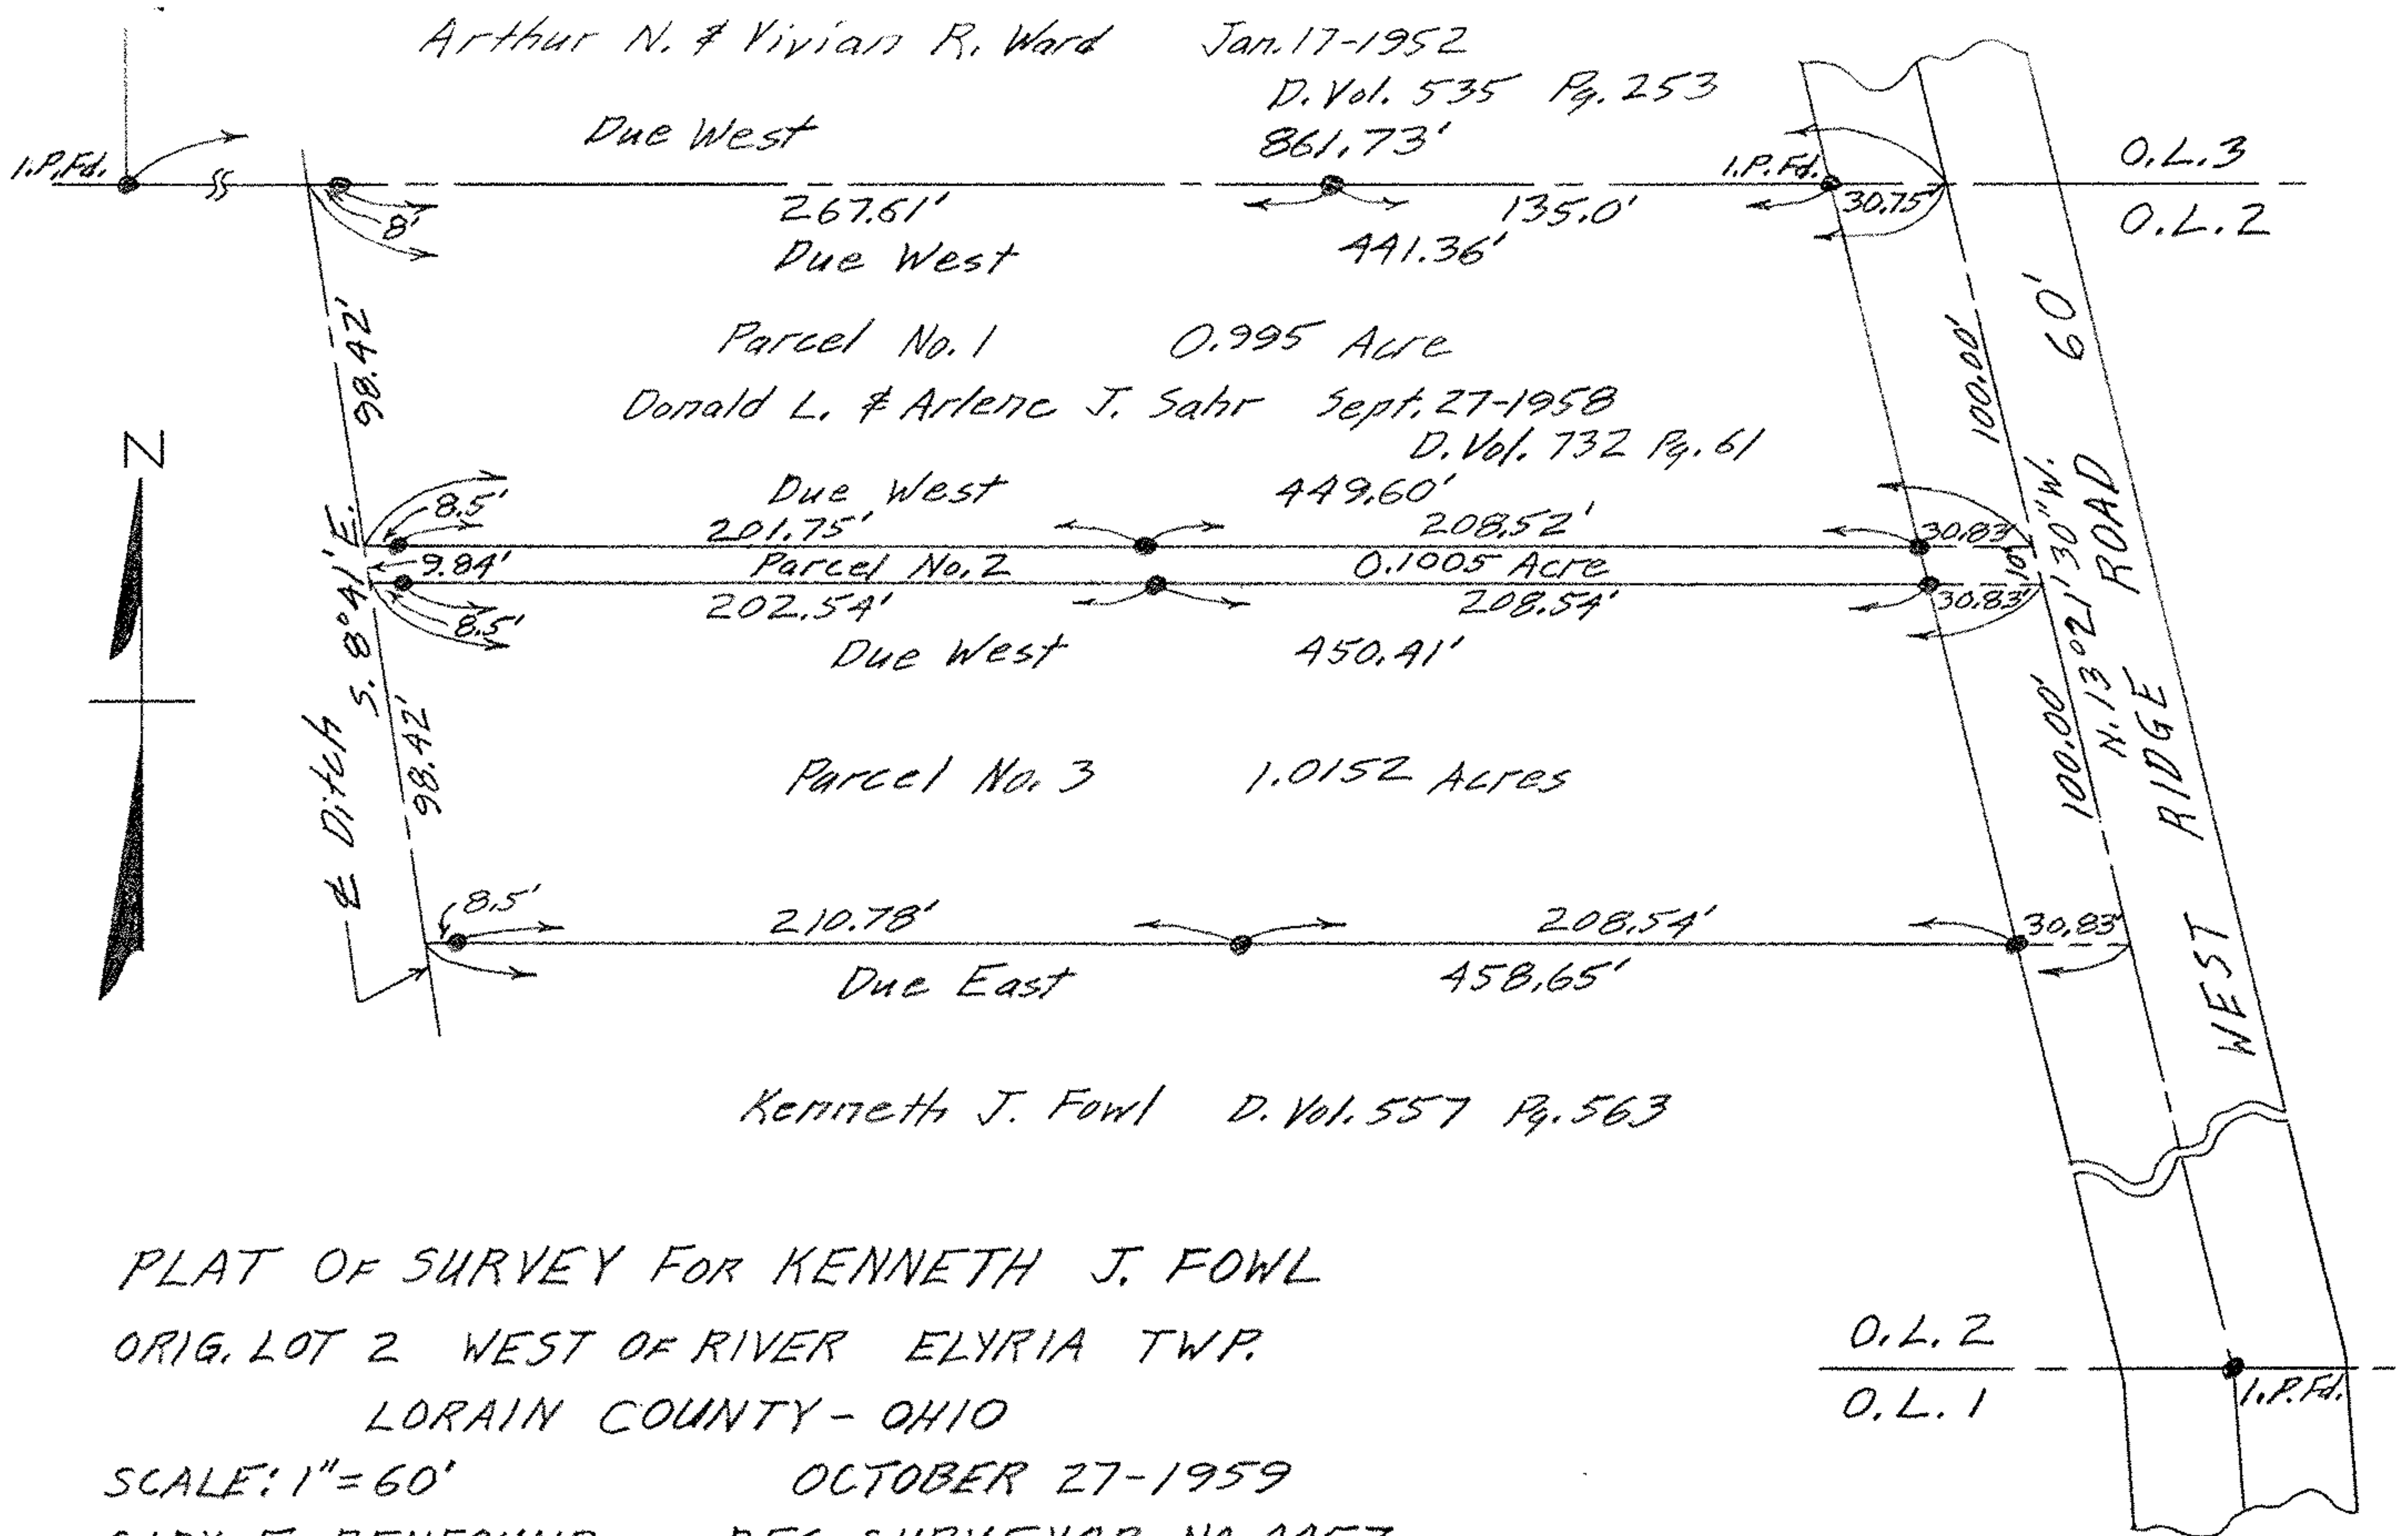 Arthur N. & Vivian R. Ward Jan. 17-1952
D. Vol. 535 Pg. 253
Due West 861.73'
I.P.Fd. I.P.Fd. O.L.3
8' 267.61' 135.0' 30.75' O.L.2
Due West 441.36'
98.42' 100.00' 60'
Parcel No. 1 0.995 Acre
Donald L. & Arlene J. Sahr Sept. 27-1958
D. Vol. 732 Pg. 61
N
Due West 449.60'
8.5' 201.75' 208.52' 30.83'
9.84' Parcel No. 2 0.1005 Acre 10'
8.5' 202.54' 208.54' 30.83'
Due West 450.41'
S. 8°41' E.
N. 13°21'30" W.
WEST RIDGE ROAD
98.42' 100.00'
Parcel No. 3 1.0152 Acres
℄ Ditch
8.5' 210.78' 208.54' 30.83'
Due East 458.65'
Kenneth J. Fowl D. Vol. 557 Pg. 563
PLAT OF SURVEY FOR KENNETH J. FOWL
ORIG. LOT 2 WEST OF RIVER ELYRIA TWP.
LORAIN COUNTY - OHIO
SCALE: 1"=60' OCTOBER 27-1959
O.L. 2
O.L. 1 I.P.Fd.
REG. SURVEYOR NO.